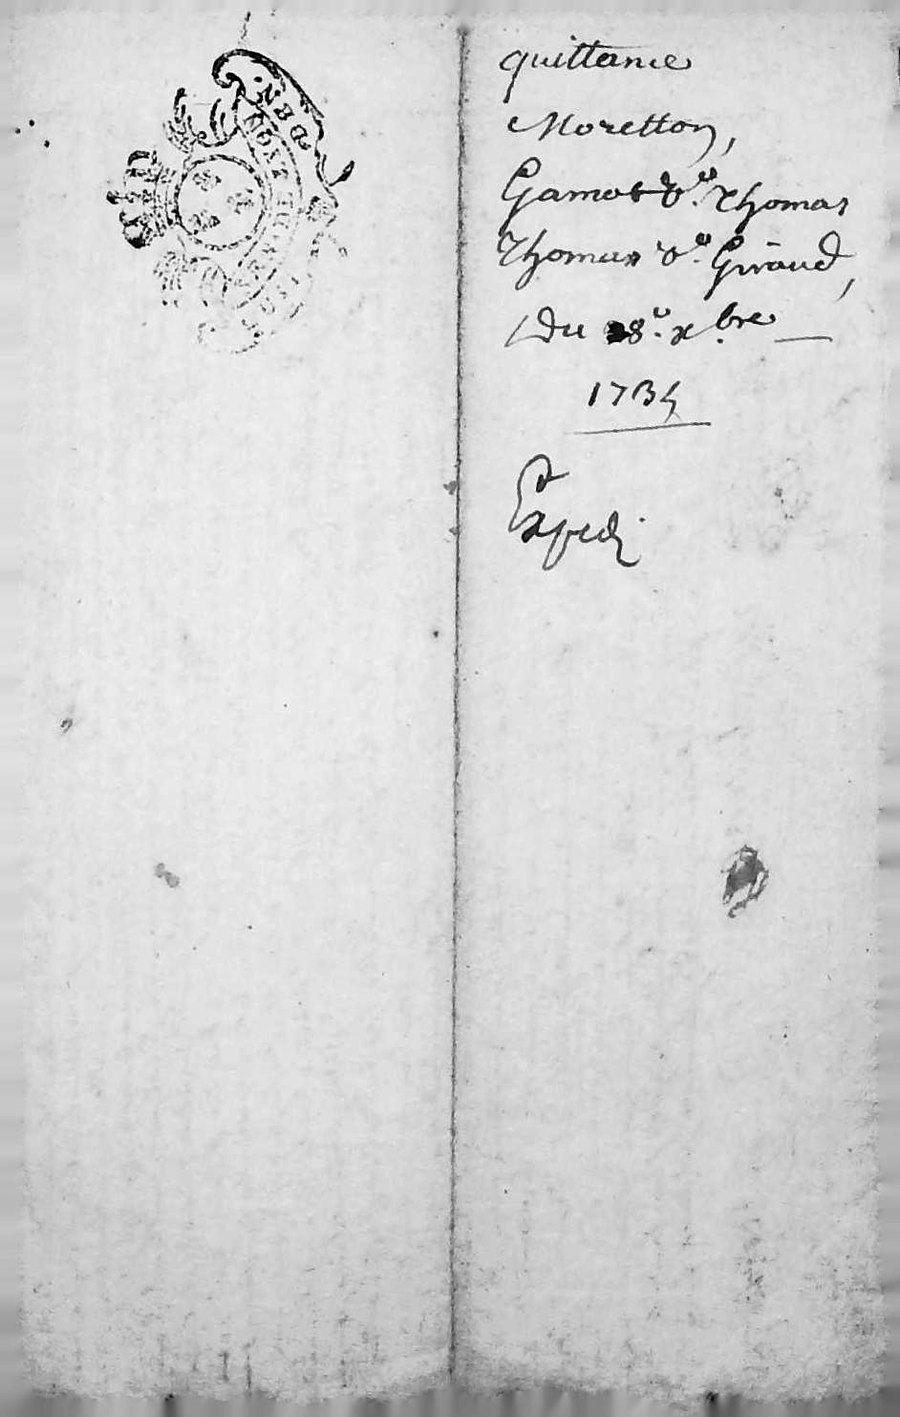 quittance
Moretton,
Gamot v.e Thomas
Thomas v.e Giraud,
du 8.e xbre
1734
Exped